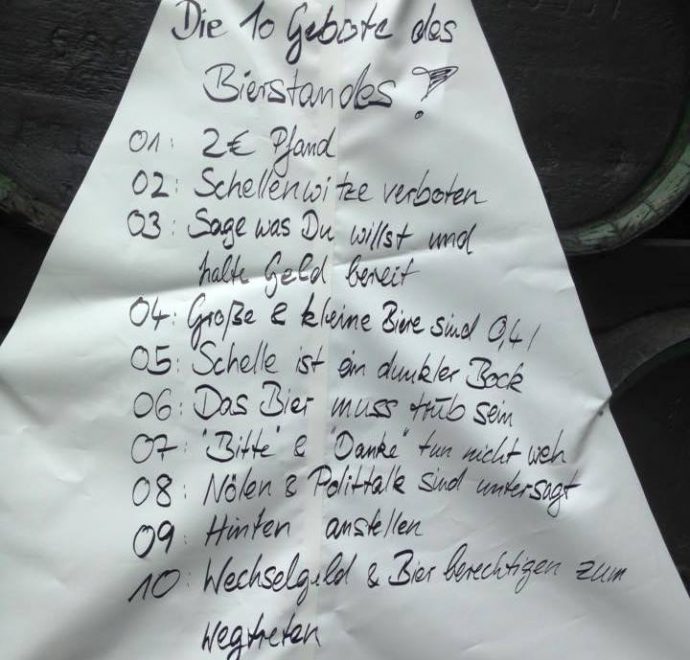 Die 10 Gebote des
Bierstandes!
01: 2€ Pfand
02: Schellenwitze verboten
03: Sage was Du willst und
halte Geld bereit
04: Große & kleine Biere sind 0,4l
05: Schelle ist ein dunkler Bock
06: Das Bier muss trüb sein
07: "Bitte" & "Danke" tun nicht weh
08: Nölen & Polittalk sind untersagt
09: Hinten anstellen
10: Wechselgeld & Bier berechtigen zum
Wegtreten